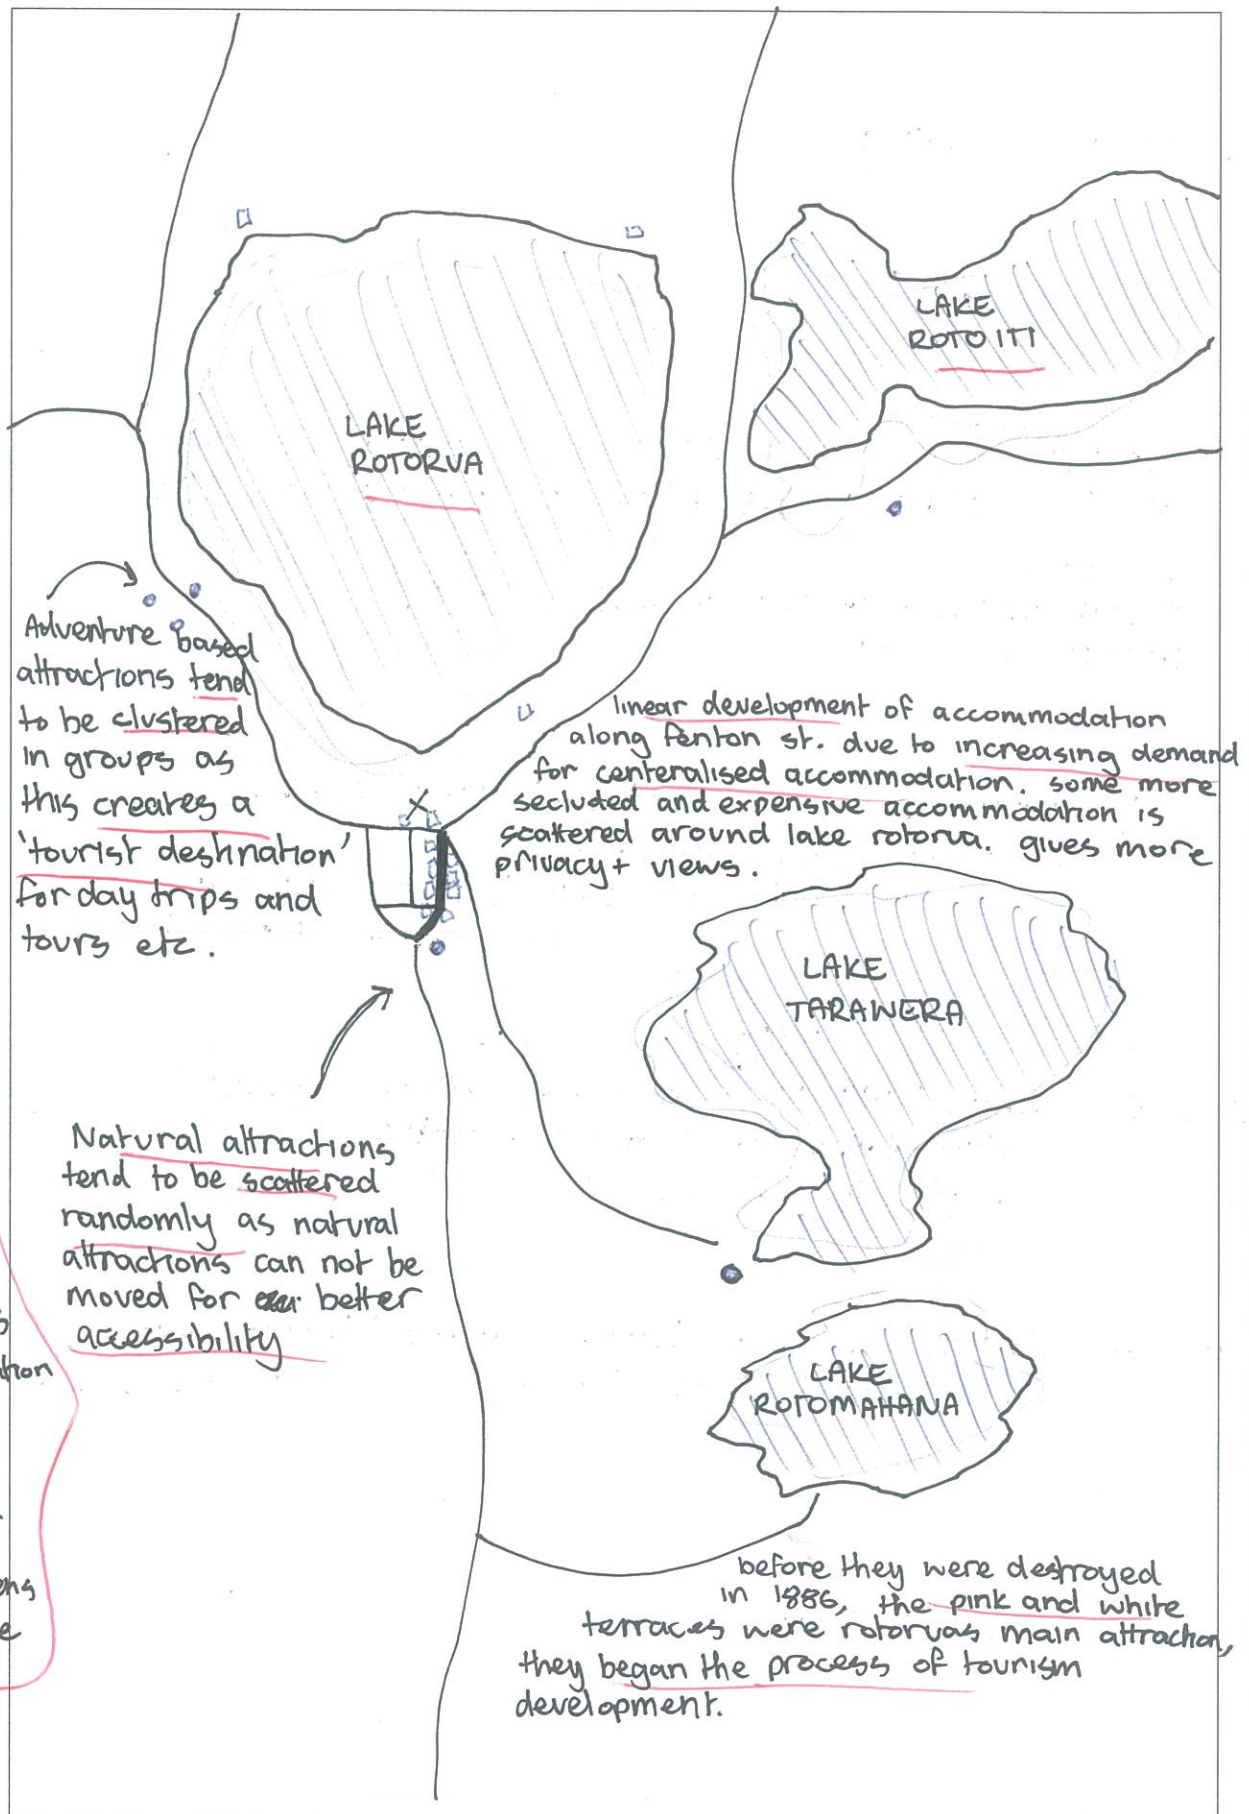 LAKE
ROTOITI
LAKE
ROTORUA
Adventure based
attractions tend
to be clustered
in groups as
this creates a
'tourist destination'
for day trips and
tours etc.
linear development of accommodation
along fenton st. due to increasing demand
for centeralised accommodation. some more
secluded and expensive accommodation is
scattered around lake rotorua. gives more
privacy + views.
X
LAKE
TARAWERA
Natural attractions
tend to be scattered
randomly as natural
attractions can not be
moved for better
accessibility
LAKE
ROTOMAHANA
before they were destroyed
in 1886, the pink and white
terraces were rotoruas main attraction,
they began the process of tourism
development.